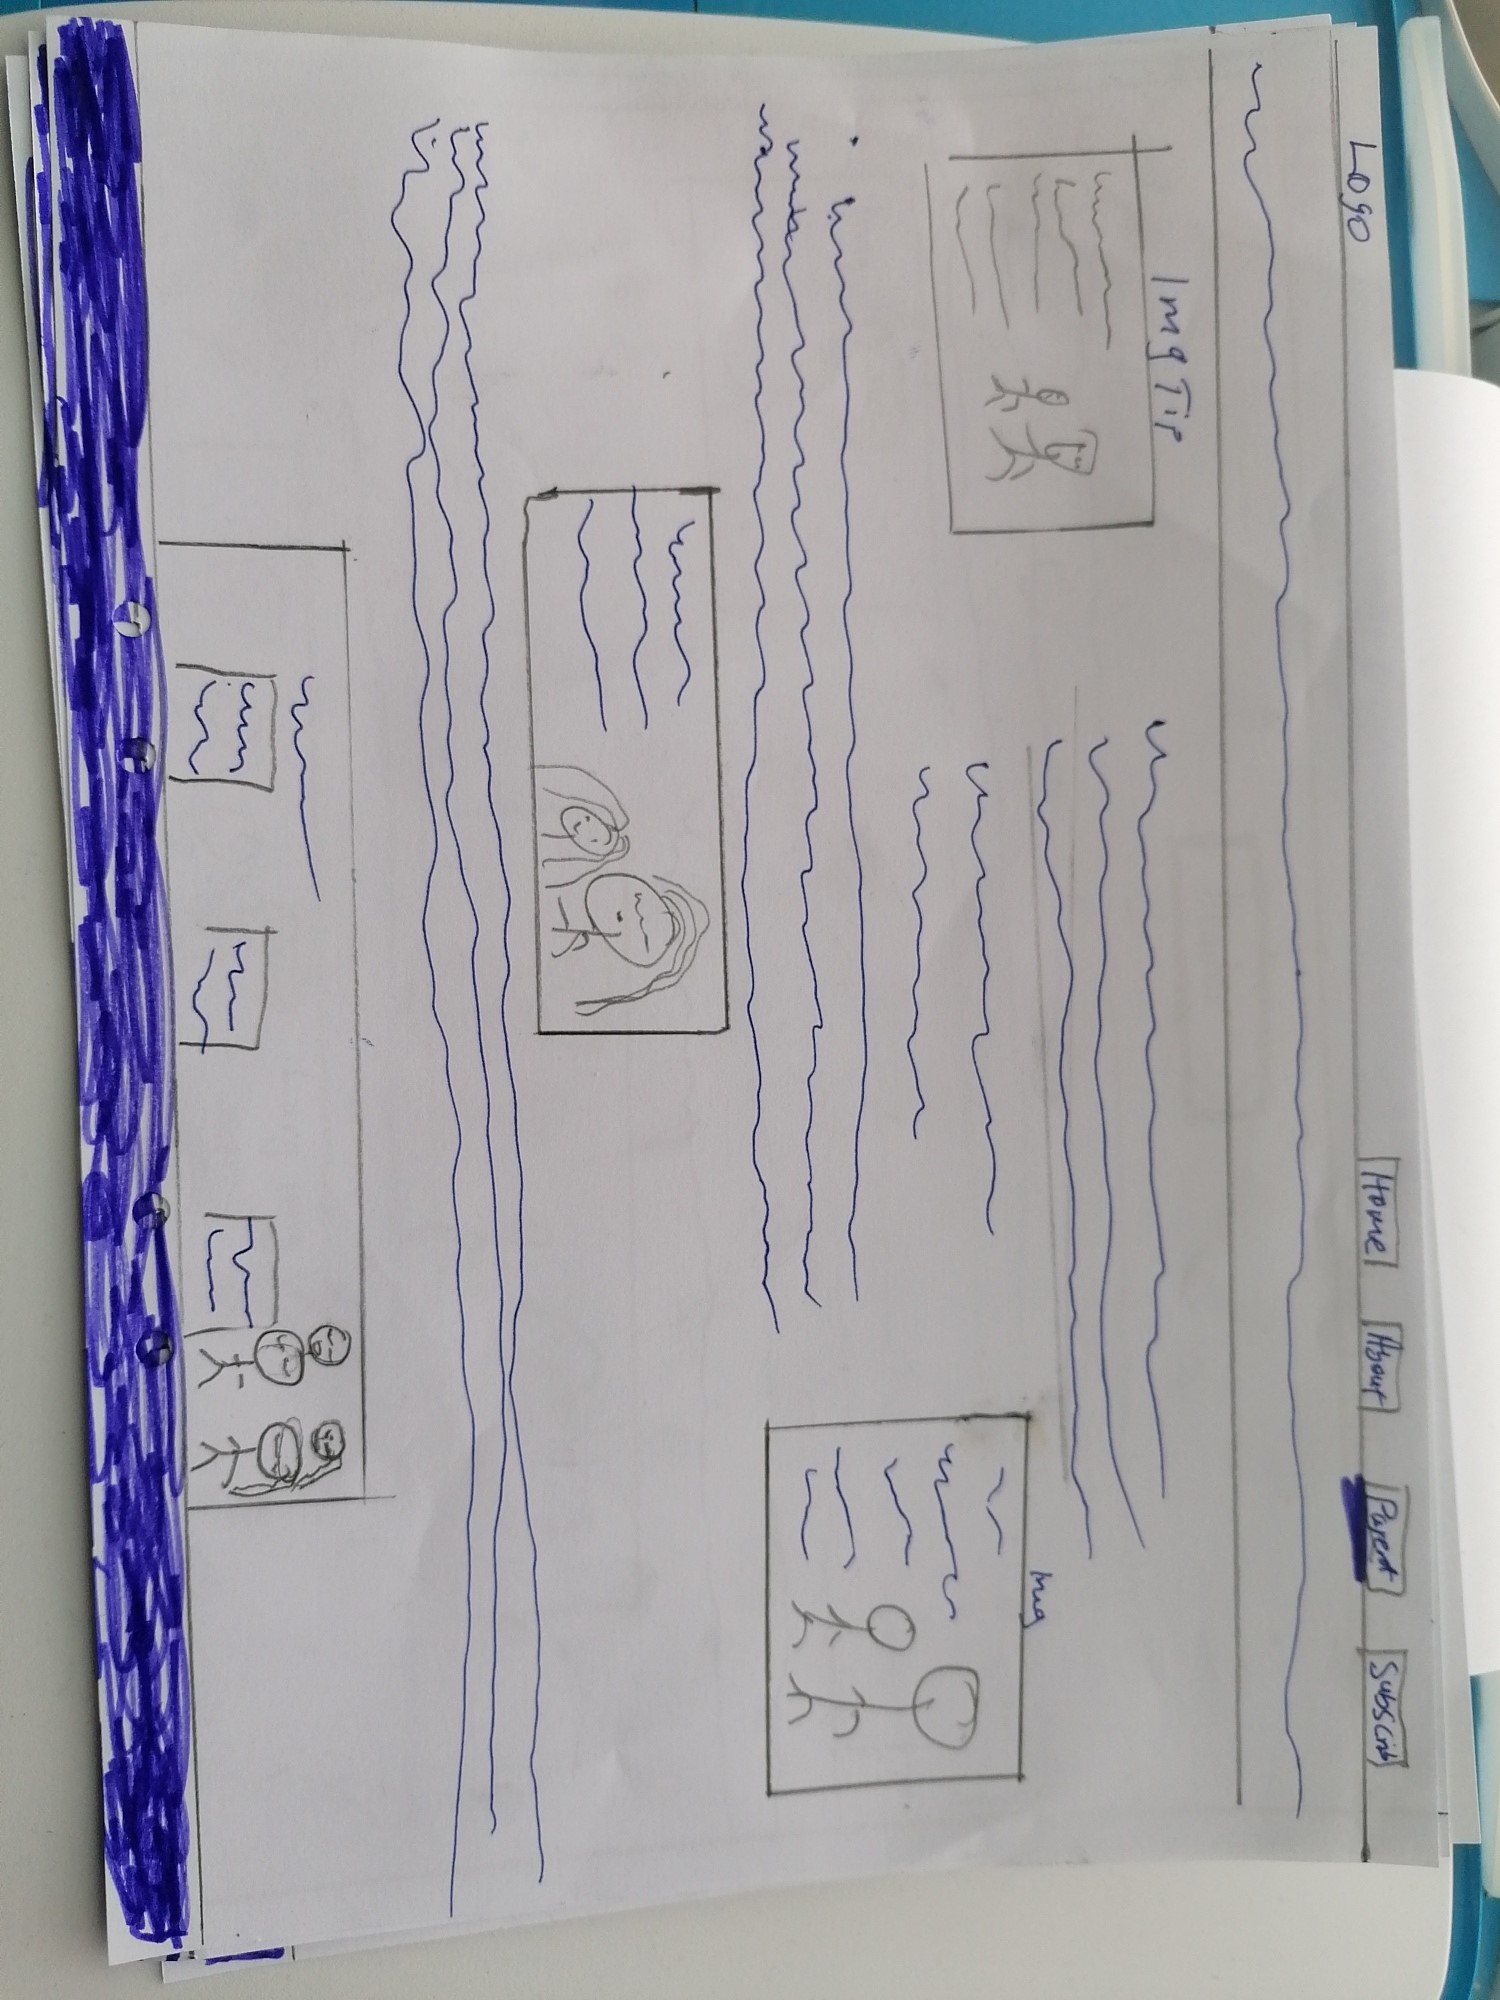 Logo Home About Parent Subscrib
Img Tip
Img